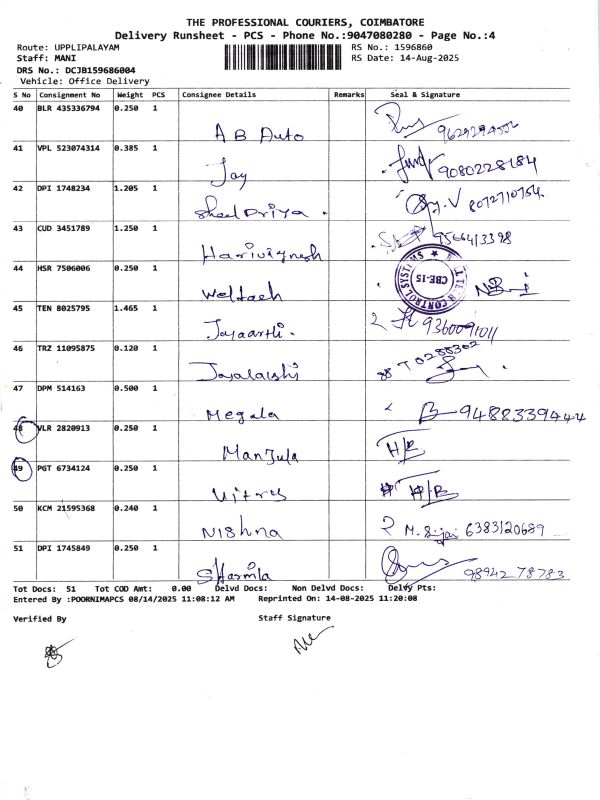 THE PROFESSIONAL COURIERS, COIMBATORE
Delivery Runsheet - PCS - Phone No.:9047080280 - Page No.:4
Route: UPPLIPALAYAM RS No.: 1596860
Staff: MANI RS Date: 14-Aug-2025
DRS No.: DCJB159686004
Vehicle: Office Delivery
S No Consignment No Weight PCS Consignee Details Remarks Seal & Signature
40 BLR 435336794 0.250 1
A B Auto
41 VPL 523074314 0.385 1
Jay 9080228184
42 DPI 1748234 1.205 1
8072710754
43 CUD 3451789 1.250 1
Harivignesh
44 HSR 7506006 0.250 1
CONTROL SYSTEMS CBE-15
45 TEN 8025795 1.465 1
Jayaarthi. 9360091011
46 TRZ 11095875 0.120 1
47 DPM 514163 0.500 1
Megala 9488339444
48 VLR 2820913 0.250 1
Manjula H/R
49 PGT 6734124 0.250 1
H/R
50 KCM 21595368 0.240 1
Nishna 6383120689
51 DPI 1745849 0.250 1
Sharmila 98942 78783
Tot Docs: 51 Tot COD Amt: 0.00 Delvd Docs: Non Delvd Docs: Delvy Pts:
Entered By :POORNIMAPCS 08/14/2025 11:08:12 AM Reprinted On: 14-08-2025 11:20:08
Verified By Staff Signature